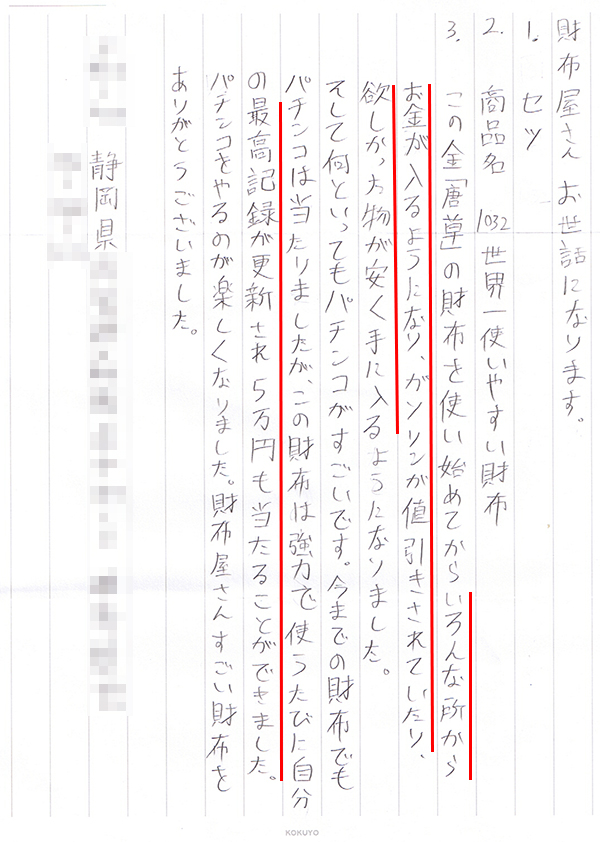 財布屋さん お世話になります。
1. セツ
2. 商品名 1032 世界一使いやすい財布
3. この金「唐草」の財布を使い始めてからいろんな所から
お金が入るようになり、ガソリンが値引きされていたり、
欲しかった物が安く手に入るようになりました。
そして何といってもパチンコがすごいです。今までの財布でも
パチンコは当たりましたが、この財布は強力で使うたびに自分
の最高記録が更新され5万円も当たることができました。
パチンコをやるのが楽しくなりました。財布屋さんすごい財布を
ありがとうございました。
静岡県
KOKUYO